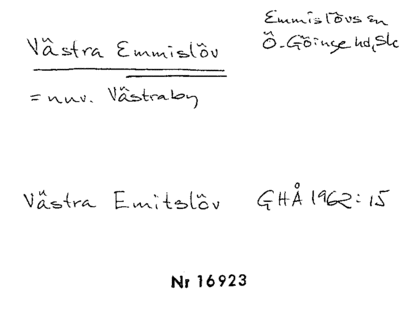 Västra Emmislöv
Emmislövs sn
Ö. Göinge hd, Sk
= nuv. Västraby
Västra Emitslöv GHÅ 1962:15
Nr 16923